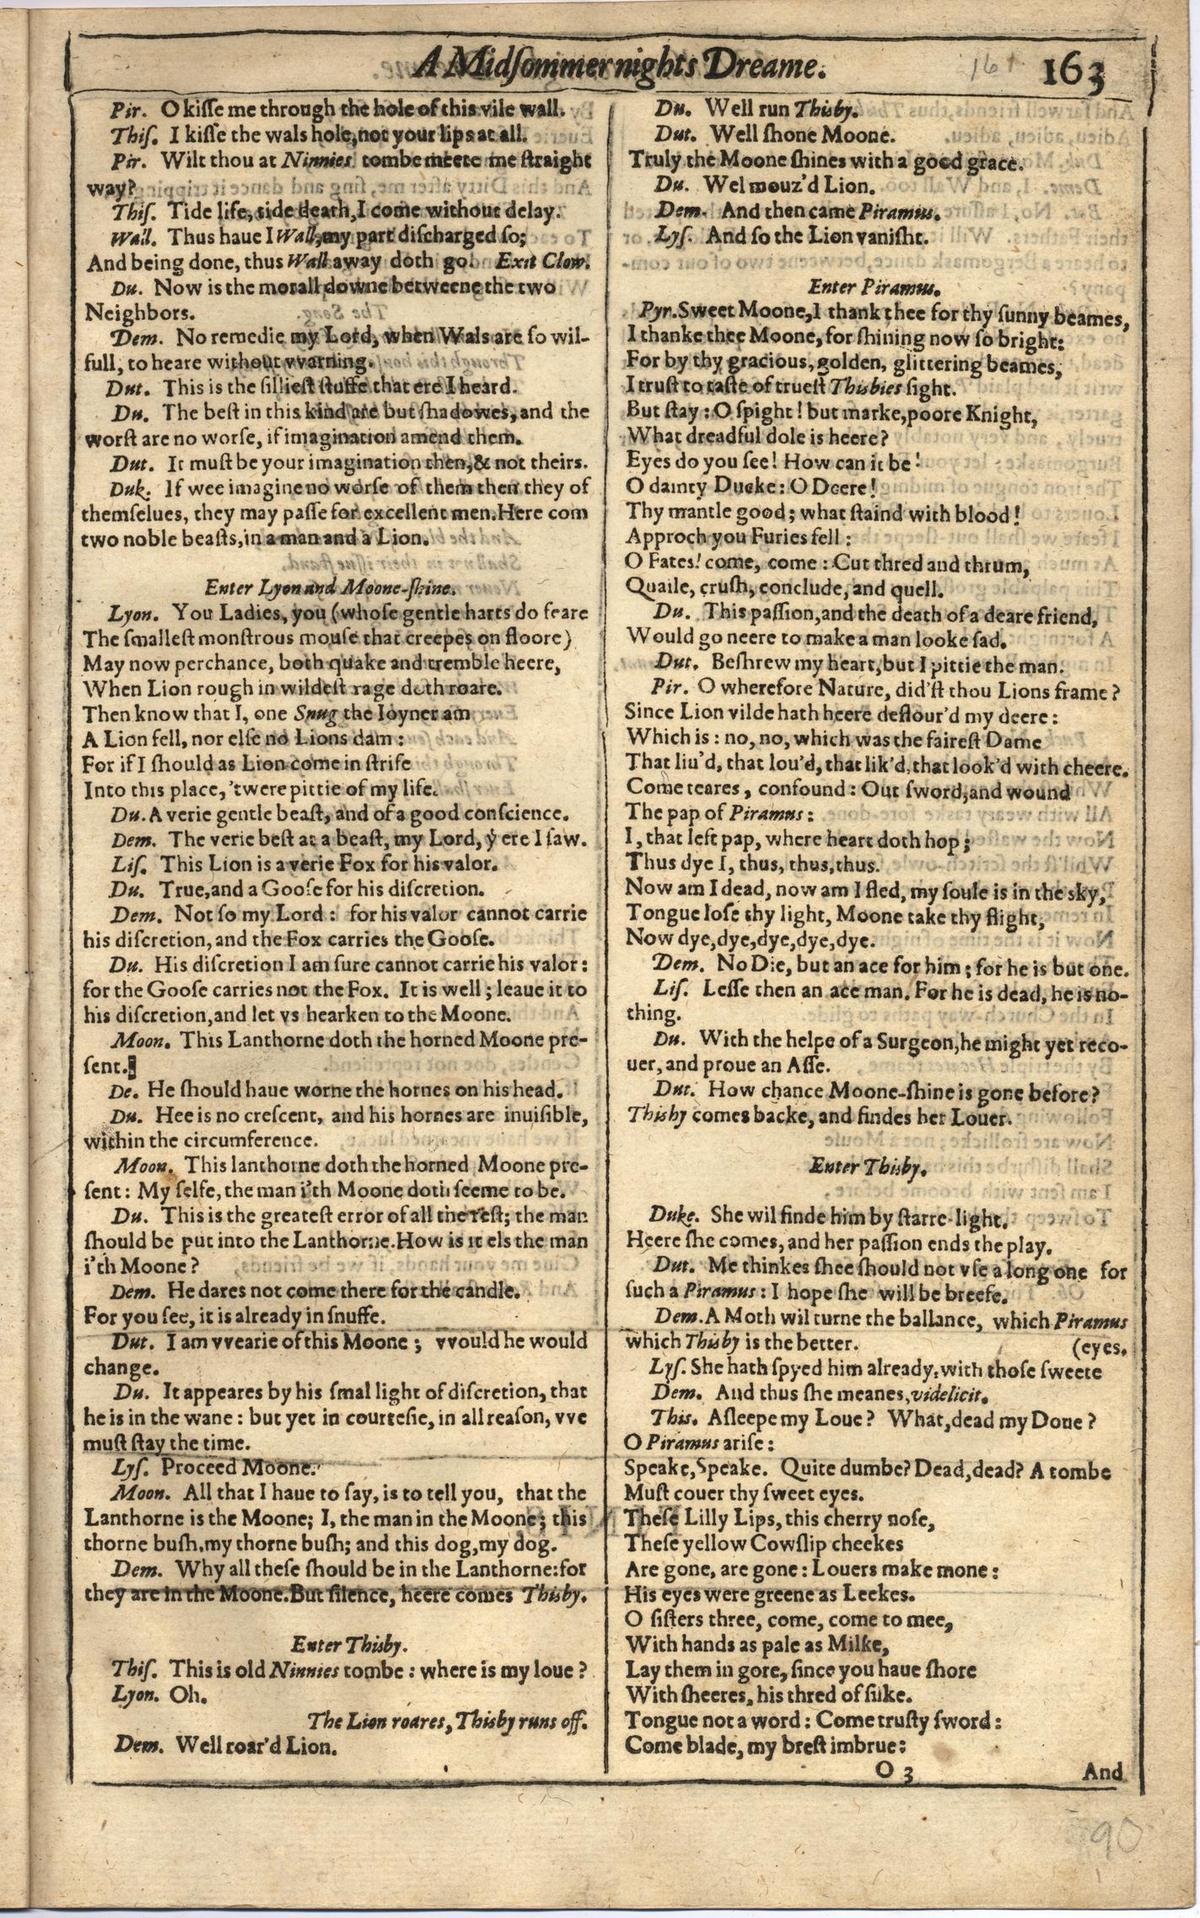 A Midſommer nights Dreame.
161
163
Pir. O kiſſe me through the hole of this vile wall.
Thiſ. I kiſſe the wals hole, not your lips at all.
Pir. Wilt thou at Ninnies tombe meete me ſtraight
way?
Thiſ. Tide life, tide death, I come without delay.
Wall. Thus haue I Wall, my part diſcharged ſo;
And being done, thus Wall away doth go. Exit Clow.
Du. Now is the morall downe betweene the two
Neighbors.
Dem. No remedie my Lord, when Wals are ſo wil-
full, to heare without vvarning.
Dut. This is the ſillieſt ſtuffe that ere I heard.
Du. The beſt in this kind are but ſhadowes, and the
worſt are no worſe, if imagination amend them.
Dut. It muſt be your imagination then, & not theirs.
Duk. If wee imagine no worſe of them then they of
themſelues, they may paſſe for excellent men. Here com
two noble beaſts, in a man and a Lion.
Enter Lyon and Moone-ſhine.
Lyon. You Ladies, you (whoſe gentle harts do feare
The ſmalleſt monſtrous mouſe that creepes on floore)
May now perchance, both quake and tremble heere,
When Lion rough in wildeſt rage doth roare.
Then know that I, one Snug the Ioyner am
A Lion fell, nor elſe no Lions dam:
For if I ſhould as Lion come in ſtrife
Into this place, 'twere pittie of my life.
Du. A verie gentle beaſt, and of a good conſcience.
Dem. The verie beſt at a beaſt, my Lord, ẏ ere I ſaw.
Liſ. This Lion is a verie Fox for his valor.
Du. True, and a Gooſe for his diſcretion.
Dem. Not ſo my Lord: for his valor cannot carrie
his diſcretion, and the Fox carries the Gooſe.
Du. His diſcretion I am ſure cannot carrie his valor:
for the Gooſe carries not the Fox. It is well; leaue it to
his diſcretion, and let vs hearken to the Moone.
Moon. This Lanthorne doth the horned Moone pre-
ſent.
De. He ſhould haue worne the hornes on his head.
Du. Hee is no creſcent, and his hornes are inuiſible,
within the circumference.
Moon. This lanthorne doth the horned Moone pre-
ſent: My ſelfe, the man i'th Moone doth ſeeme to be.
Du. This is the greateſt error of all the reſt; the man
ſhould be put into the Lanthorne. How is it els the man
i'th Moone?
Dem. He dares not come there for the candle.
For you ſee, it is already in ſnuffe.
Dut. I am vvearie of this Moone; vvould he would
change.
Du. It appeares by his ſmal light of diſcretion, that
he is in the wane: but yet in courteſie, in all reaſon, vve
muſt ſtay the time.
Lyſ. Proceed Moone.
Moon. All that I haue to ſay, is to tell you, that the
Lanthorne is the Moone; I, the man in the Moone; this
thorne buſh, my thorne buſh; and this dog, my dog.
Dem. Why all theſe ſhould be in the Lanthorne: for
they are in the Moone. But ſilence, heere comes Thisby.
Enter Thisby.
Thiſ. This is old Ninnies tombe: where is my loue?
Lyon. Oh.
The Lion roares, Thisby runs off.
Dem. Well roar'd Lion.
Du. Well run Thisby.
Dut. Well ſhone Moone.
Truly the Moone ſhines with a good grace.
Du. Wel mouz'd Lion.
Dem. And then came Piramus.
Lyſ. And ſo the Lion vaniſht.
Enter Piramus.
Pyr. Sweet Moone, I thank thee for thy ſunny beames,
I thanke thee Moone, for ſhining now ſo bright:
For by thy gracious, golden, glittering beames,
I truſt to taſte of trueſt Thisbies ſight.
But ſtay: O ſpight! but marke, poore Knight,
What dreadful dole is heere?
Eyes do you ſee! How can it be!
O dainty Ducke: O Deere!
Thy mantle good; what ſtaind with blood!
Approch you Furies fell:
O Fates! come, come: Cut thred and thrum,
Quaile, cruſh, conclude, and quell.
Du. This paſſion, and the death of a deare friend,
Would go neere to make a man looke ſad.
Dut. Beſhrew my heart, but I pittie the man.
Pir. O wherefore Nature, did'ſt thou Lions frame?
Since Lion vilde hath heere deflour'd my deere:
Which is: no, no, which was the faireſt Dame
That liu'd, that lou'd, that lik'd, that look'd with cheere.
Come teares, confound: Out ſword, and wound
The pap of Piramus:
I, that left pap, where heart doth hop;
Thus dye I, thus, thus, thus.
Now am I dead, now am I fled, my ſoule is in the sky,
Tongue loſe thy light, Moone take thy flight,
Now dye, dye, dye, dye, dye.
Dem. No Die, but an ace for him; for he is but one.
Liſ. Leſſe then an ace man. For he is dead, he is no-
thing.
Du. With the helpe of a Surgeon, he might yet reco-
uer, and proue an Aſſe.
Dut. How chance Moone-ſhine is gone before?
Thisby comes backe, and findes her Louer.
Enter Thisby.
Duke. She wil finde him by ſtarre-light.
Heere ſhe comes, and her paſſion ends the play.
Dut. Me thinkes ſhee ſhould not vſe a long one for
ſuch a Piramus: I hope ſhe will be breefe.
Dem. A Moth wil turne the ballance, which Piramus
which Thisby is the better. (eyes.
Lyſ. She hath ſpyed him already, with thoſe ſweete
Dem. And thus ſhe meanes, videlicit.
This. Aſleepe my Loue? What, dead my Doue?
O Piramus ariſe:
Speake, Speake. Quite dumbe? Dead, dead? A tombe
Muſt couer thy ſweet eyes.
Theſe Lilly Lips, this cherry noſe,
Theſe yellow Cowſlip cheekes
Are gone, are gone: Louers make mone:
His eyes were greene as Leekes.
O ſiſters three, come, come to mee,
With hands as pale as Milke,
Lay them in gore, ſince you haue ſhore
With ſheeres, his thred of ſilke.
Tongue not a word: Come truſty ſword:
Come blade, my breſt imbrue:
O 3
And
90